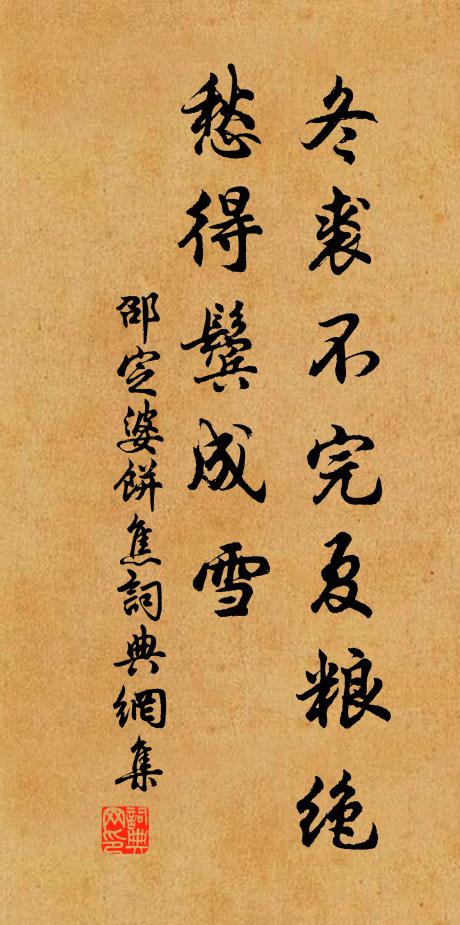 冬裘不完夏粮绝
愁得鬓成雪
邵定婆餅焦詞典網集
詞典
网印